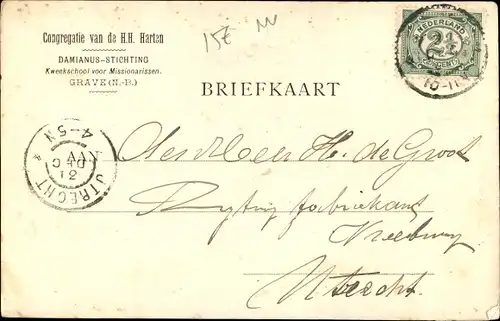 Congregatie van de H.H. Harten
DAMIANUS-STICHTING
Kweekschool voor Missionarissen.
GRAVE (N.-B.)
15E
NEDERLAND
2½
CENT
10-11
BRIEFKAART
UTRECHT
4-5N
12
den Heer H. de Groot
Rijtuigfabrikant
Vreeburg
Utrecht.